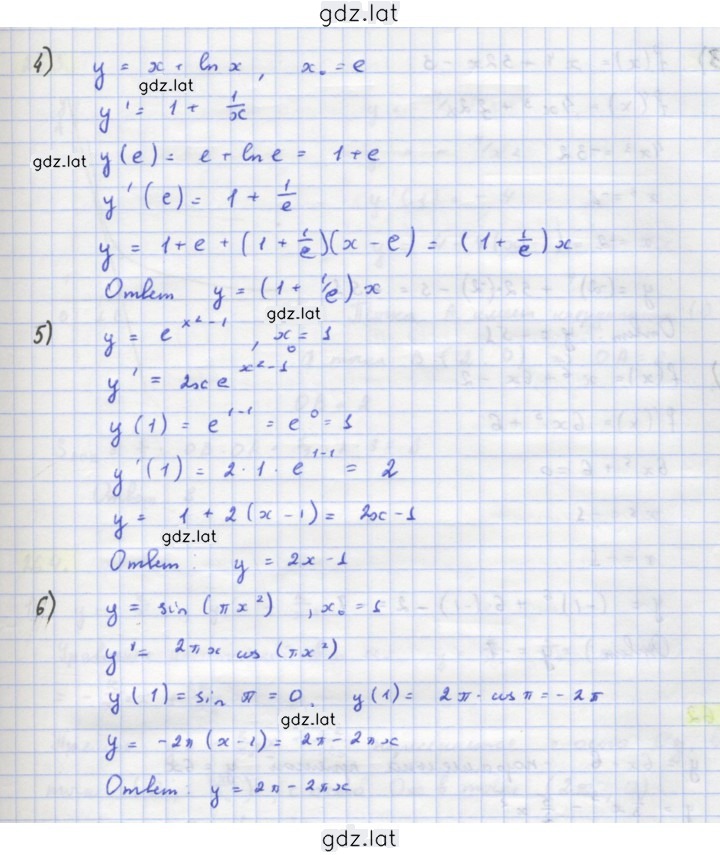 gdz.lat
4) y = x + ln x, x₀ = e
gdz.lat
y' = 1 + 1/x
gdz.lat y(e) = e + ln e = 1 + e
y'(e) = 1 + 1/e
y = 1 + e + (1 + 1/e)(x - e) = (1 + 1/e) x
Ответ y = (1 + 1/e) x
gdz.lat
5) y = e^(x²-1), x₀ = 1
y' = 2x e^(x²-1)
y(1) = e^(1-1) = e⁰ = 1
y'(1) = 2·1·e^(1-1) = 2
y = 1 + 2(x - 1) = 2x - 1
gdz.lat
Ответ: y = 2x - 1
6) y = sin (πx²), x₀ = 1
y' = 2πx cos (πx²)
y(1) = sin π = 0. y(1) = 2π·cos π = -2π
gdz.lat
y = -2π(x-1) = 2π - 2πx
Ответ: y = 2π - 2πx
gdz.lat